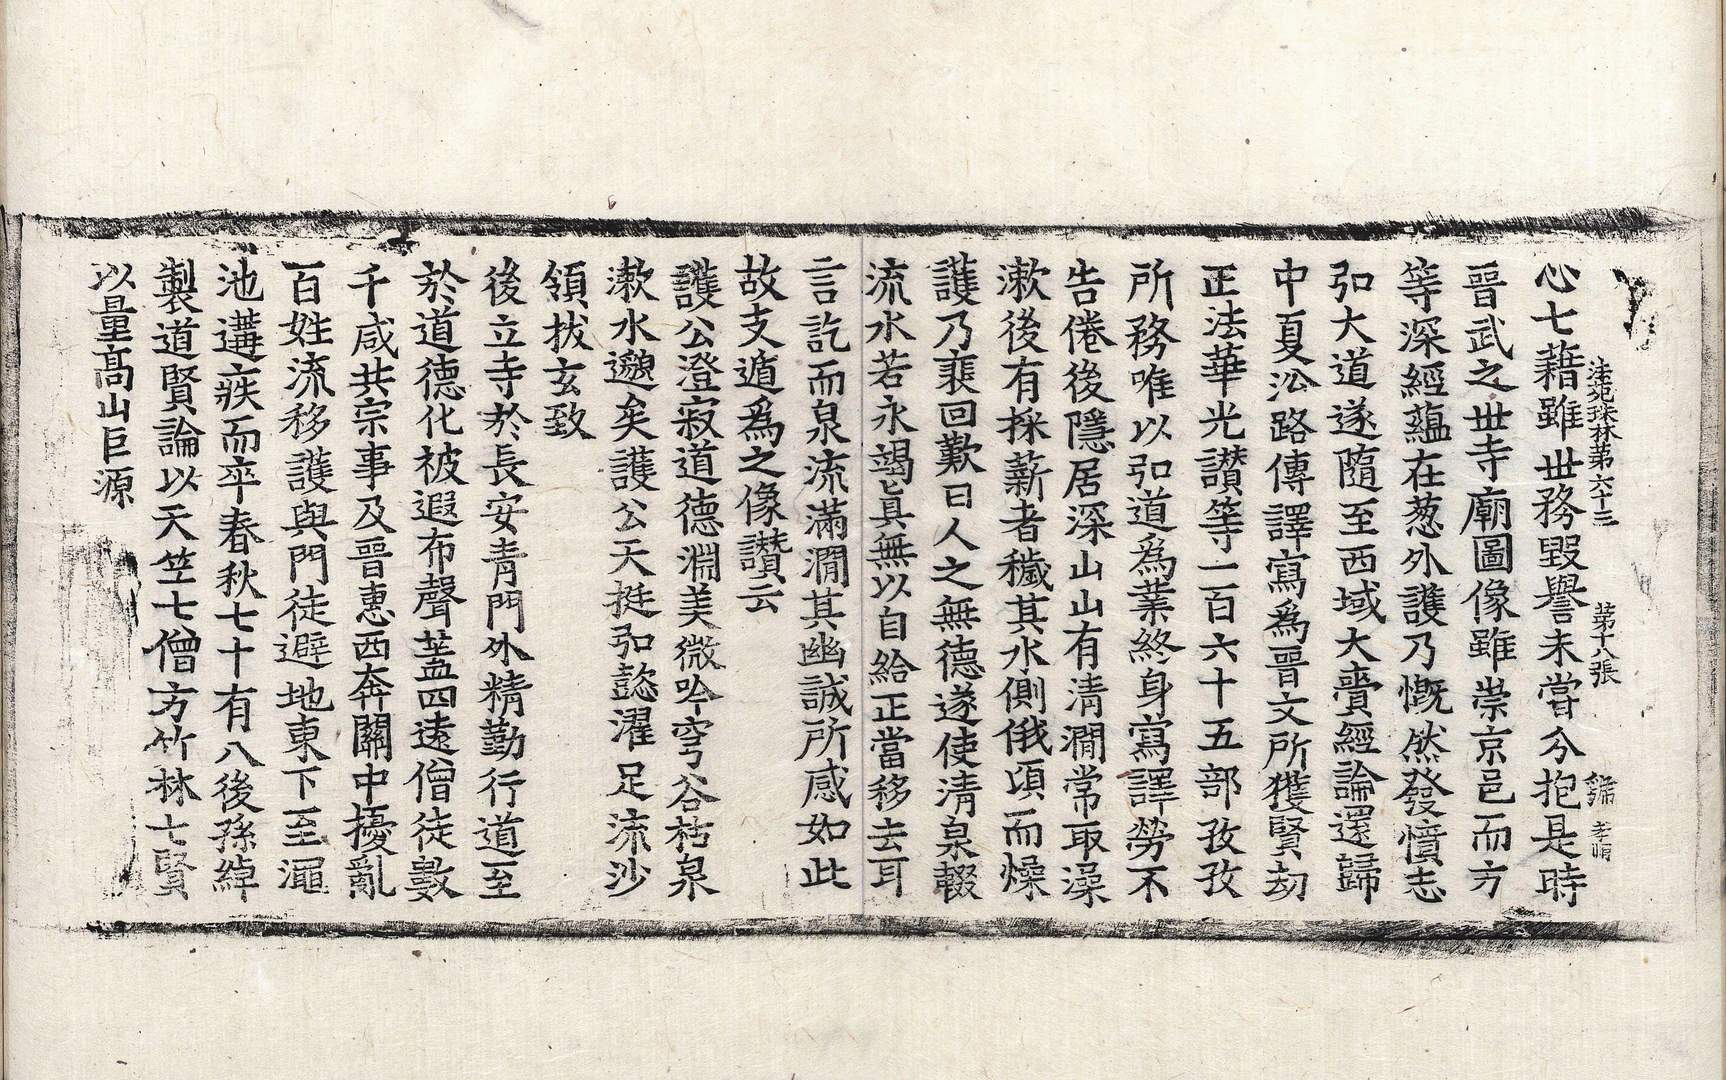 法苑珠林第六十三　第十八張　綿
心七藉雖世務毀譽未嘗介抱是時
晉武之世寺廟圖像雖崇京邑而方
等深經蘊在葱外護乃慨然發憤志
弘大道遂隨至西域大賷經論還歸
中夏㳂路傳譯寫爲晉文所獲賢劫
正法華光讃等一百六十五部孜孜
所務唯以弘道爲業終身寫譯勞不
告倦後隱居深山山有清澗常取澡
漱後有採薪者穢其水側俄頃而燥
護乃裴回歎曰人之無德遂使清泉輟
流水若永竭真無以自給正當移去耳
言訖而泉流滿澗其幽誠所感如此
故支遁爲之像讃云
護公澄寂道德淵美微吟穹谷枯泉
漱水邈矣護公天挺弘懿濯足流沙
領拔玄致
後立寺於長安青門外精勤行道至
於道德化被遐布聲蓋四遠僧徒數
千咸共宗事及晉惠西奔關中擾亂
百姓流移護與門徒避地東下至澠
池遘疾而卒春秋七十有八後孫綽
製道賢論以天竺七僧方竹林七賢
以量髙山巨源